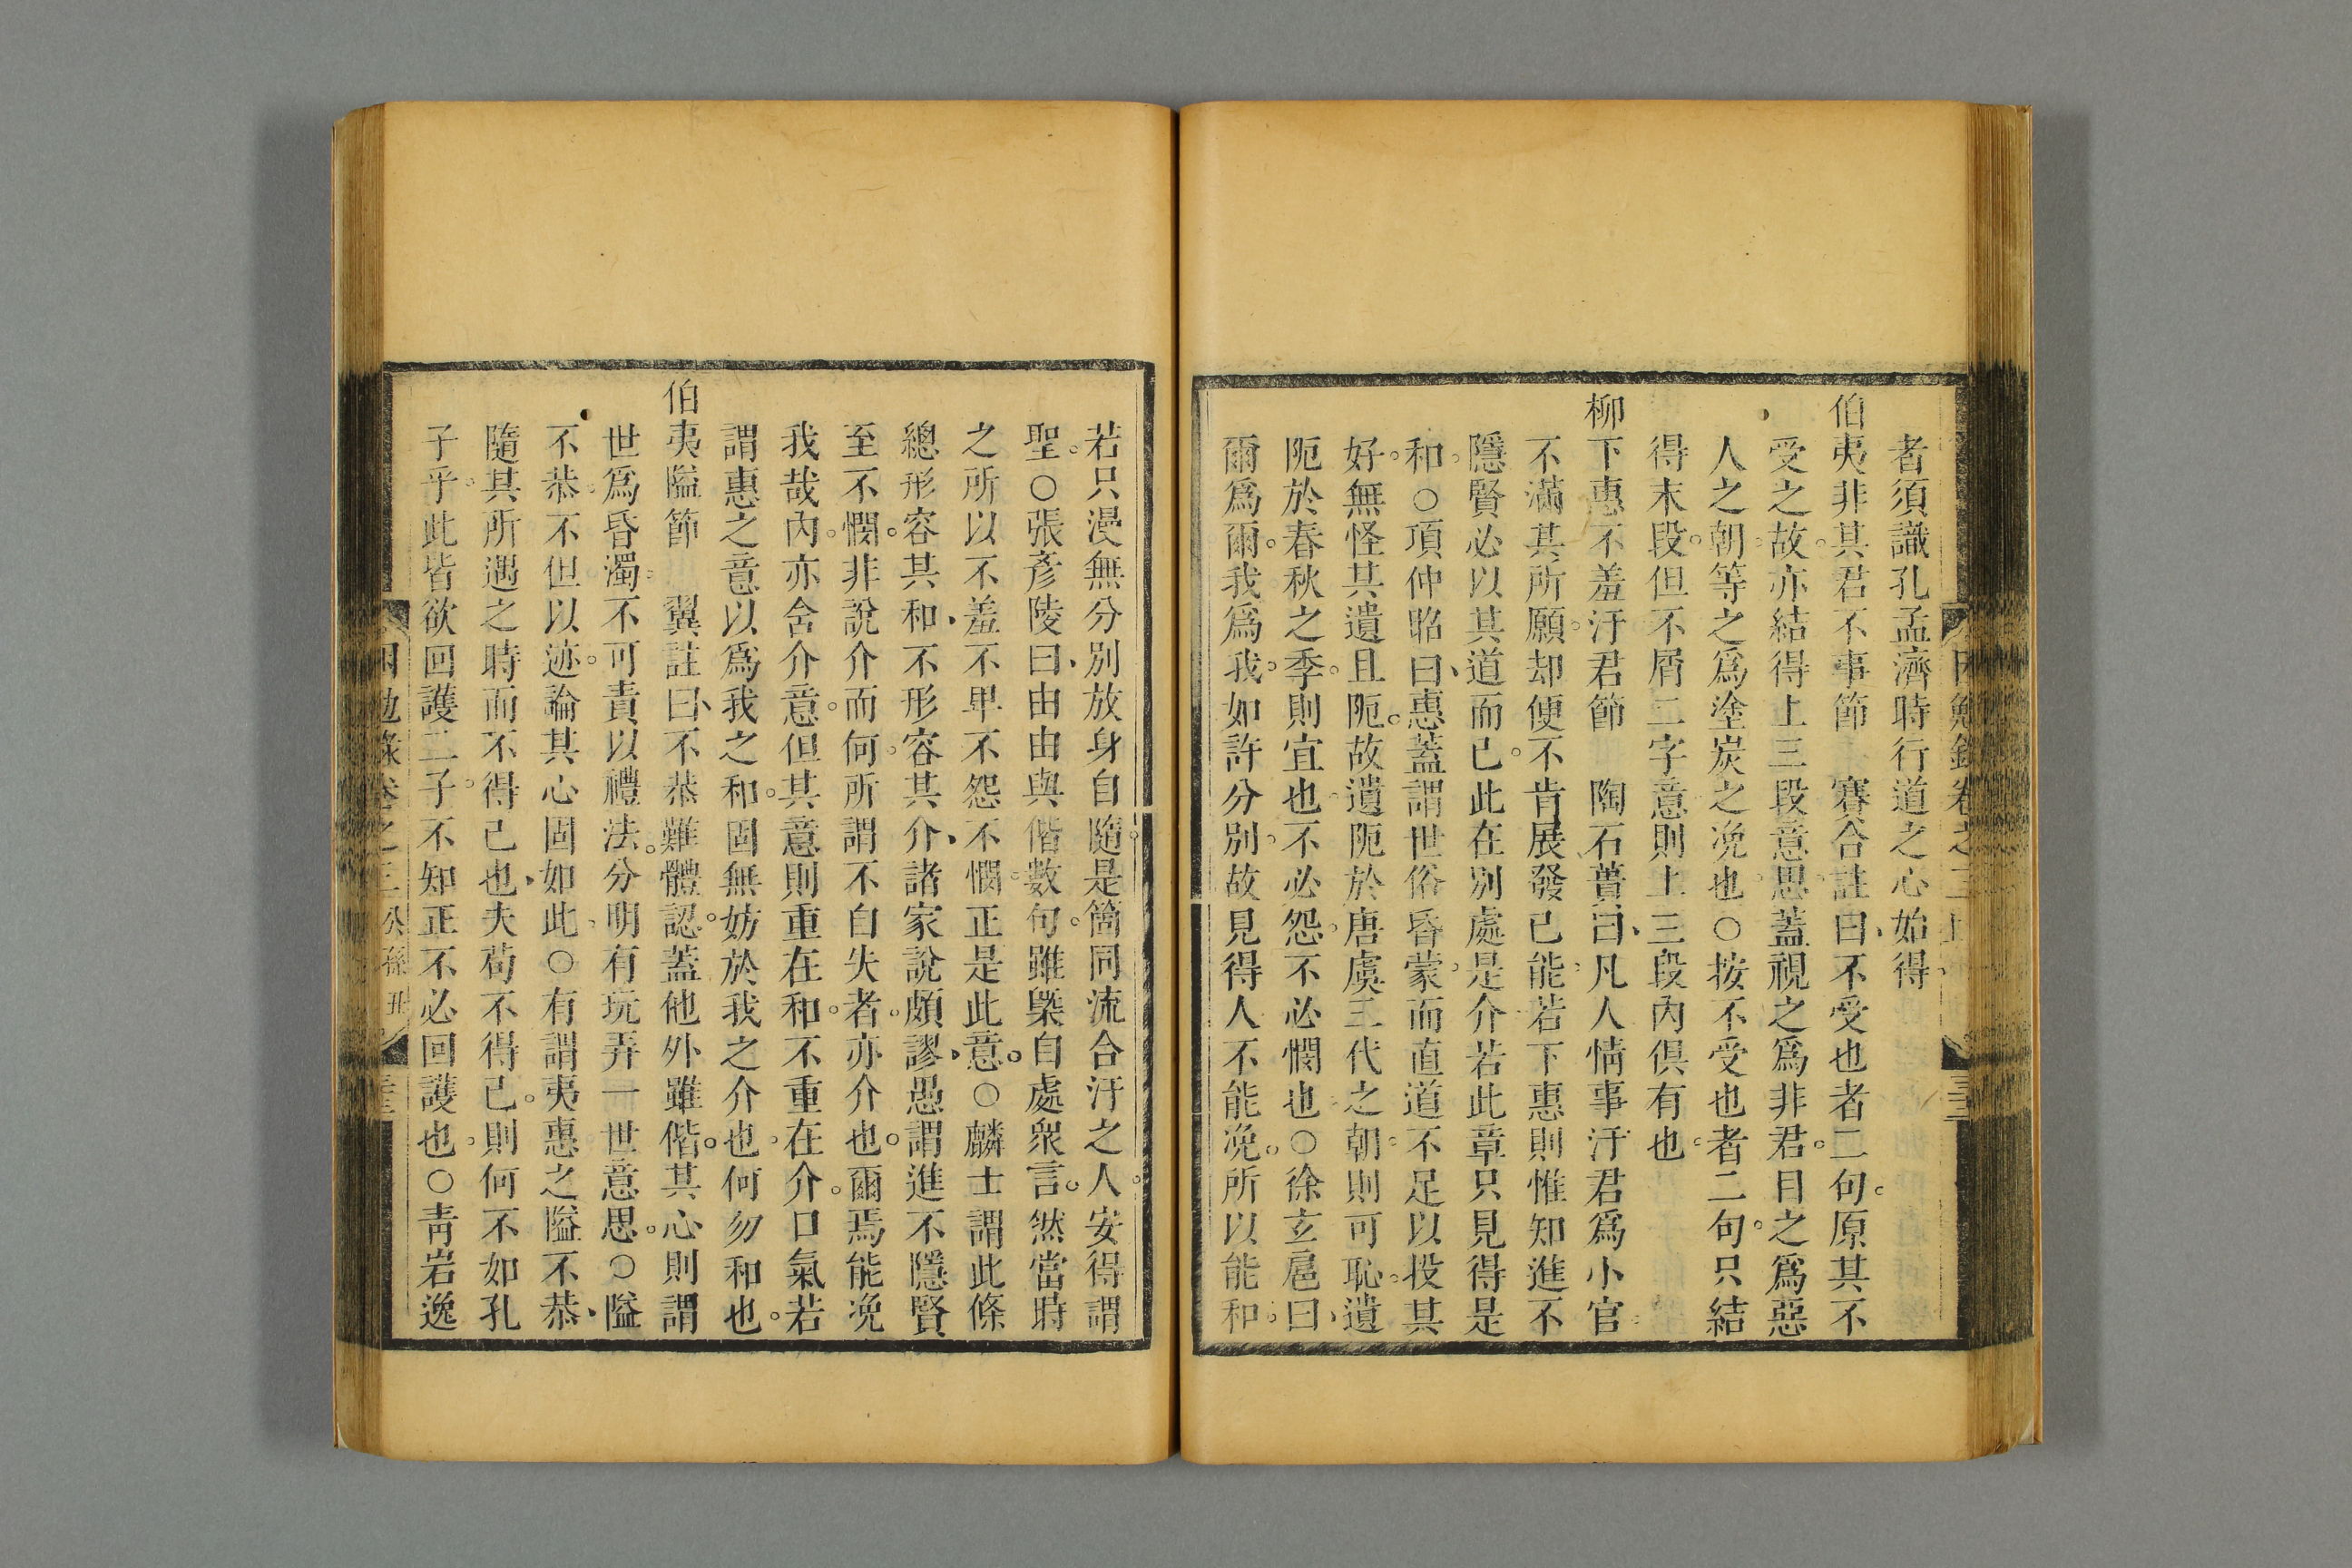 者須識孔孟濟時行道之心始得
伯夷非其君不事節 賽合註曰不受也者二句原其不
受之故亦結得上三段意思蓋視之爲非君目之爲惡
人之朝等之爲塗炭之浼也○按不受也者二句只結
得末段但不屑二字意則上三段內俱有也
柳下惠不羞汙君節 陶石簣曰凡人情事汙君爲小官
不滿其所願却便不肯展發已能若下惠則惟知進不
隱賢必以其道而已此在別處是介若此章只見得是
和○項仲昭曰惠蓋謂世俗昏蒙而直道不足以投其
好無怪其遺且阨故遺阨於唐虞三代之朝則可恥遺
阨於春秋之季則宜也不必怨不必憫也○徐玄扈曰
爾爲爾我爲我如許分別故見得人不能浼所以能和
若只漫無分別放身自隨是箇同流合汙之人安得謂
聖○張彥陵曰由由與偕數句雖槩自處衆言然當時
之所以不羞不卑不怨不憫正是此意○麟士謂此條
總形容其和不形容其介諸家說頗謬愚謂進不隱賢
至不憫非說介而何所謂不自失者亦介也爾焉能浼
我哉內亦舍介意但其意則重在和不重在介口氣若
謂惠之意以爲我之和固無妨於我之介也何勿和也
伯夷隘節 翼註曰不恭難體認蓋他外雖偕其心則謂
世爲昏濁不可責以禮法分明有玩弄一世意思○隘
不恭不但以迹論其心固如此○有謂夷惠之隘不恭
隨其所遇之時而不得已也夫苟不得已則何不如孔
子乎此皆欲回護二子不知正不必回護也○靑岩逸
困勉錄卷之三 公孫丑